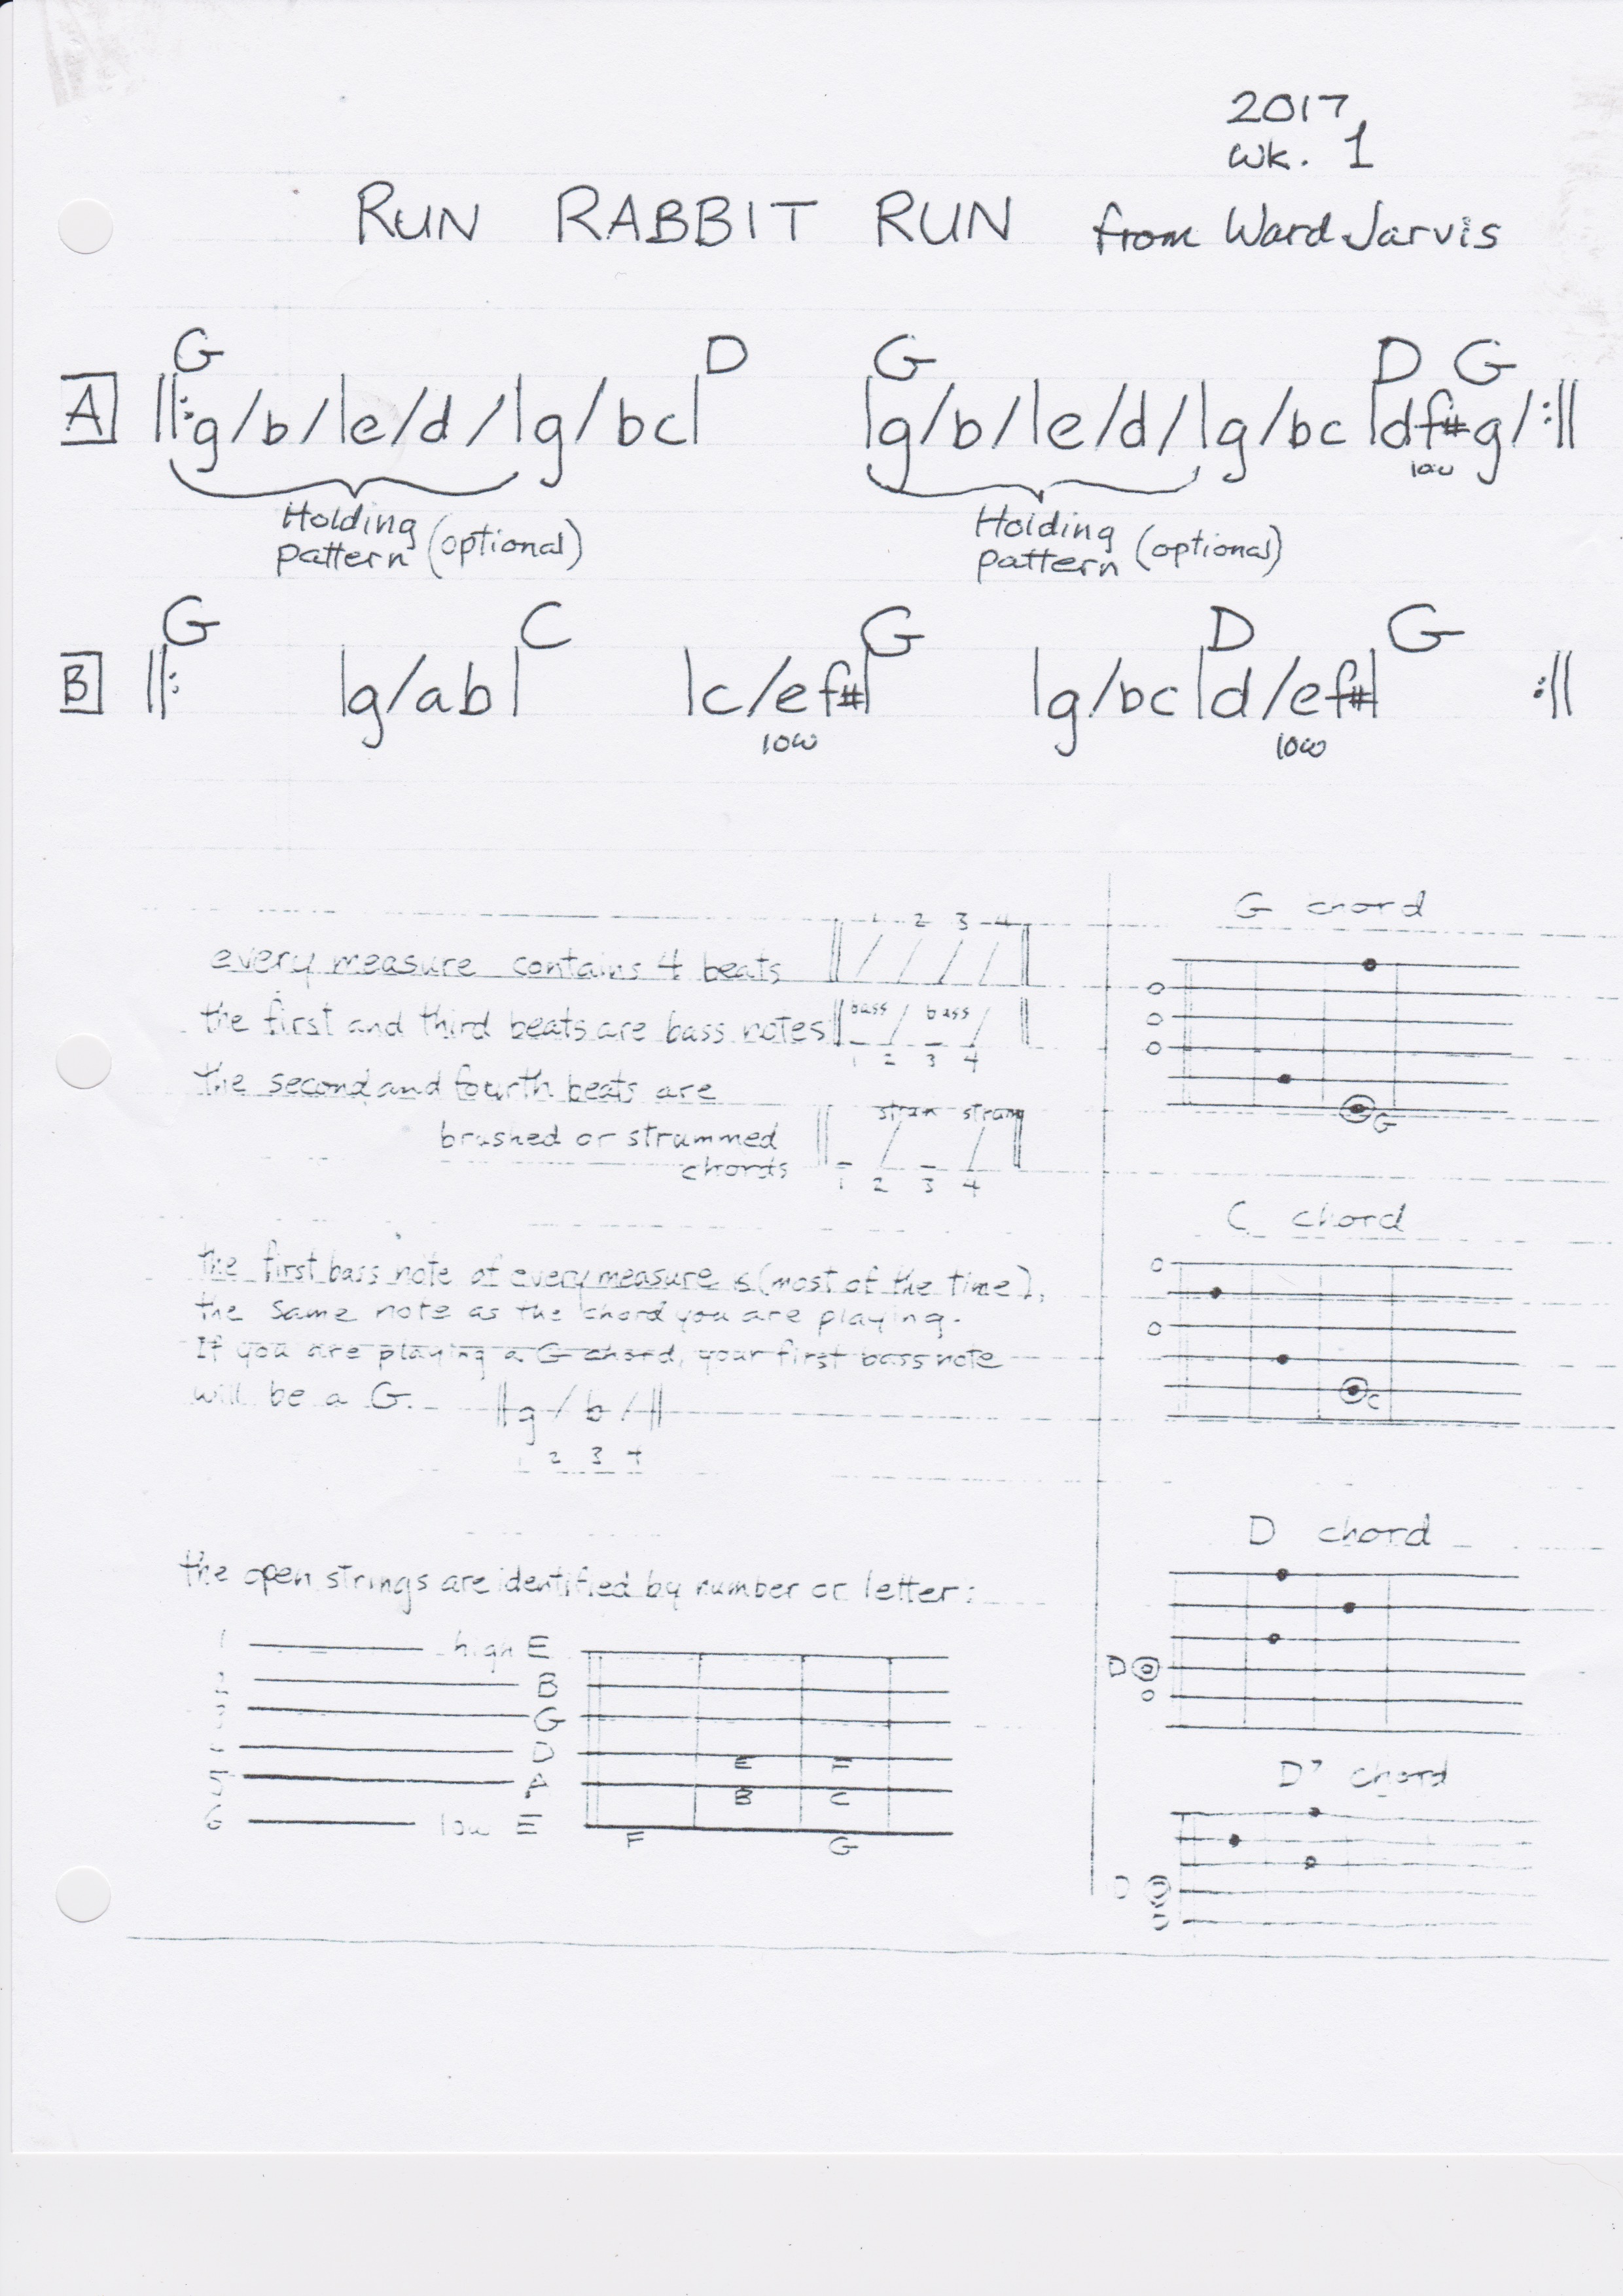 2017
wk. 1
RUN RABBIT RUN from Ward Jarvis
G D G D G
A ||:g/b/|e/d/|g/bc| |g/b/|e/d/|g/bc|df#g/:||
low
Holding pattern (optional) Holding pattern (optional)
G C G D G
B ||: |g/ab| |c/ef#| |g/bc|d/ef#| :||
low low
every measure contains 4 beats
1 2 3 4
the first and third beats are bass notes
bass / bass /
1 2 3 4
the second and fourth beats are
brushed or strummed
chords
strum strum
1 2 3 4
the first bass note of every measure is (most of the time),
the same note as the chord you are playing.
If you are playing a G chord, your first bass note
will be a G. ||g/b/||
1 2 3 4
the open strings are identified by number or letter:
1 high E
2 B
3 G
4 D
5 A
6 low E
E F
B C
F G
G chord
G
C chord
C
D chord
D
D7 chord
D